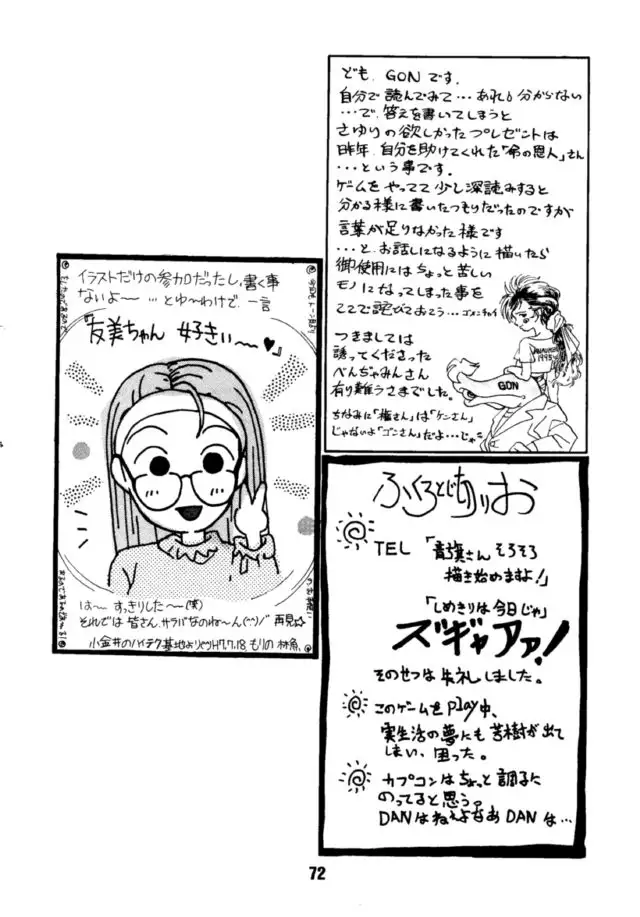 ども、GONです。
自分で読んでみて…あれ?分からない
…で、答えを書いてしまうと
さゆりの欲しかったプレゼントは
昨年、自分を助けてくれた「命の恩人」さん
…という事です。
ゲームをやってて少し深読みすると
分かる様に書いたつもりだったのですが
言葉が足りなかった様です
…と、お話しになるように描いたら
御使用にはちょっと苦しい
モノになってしまった事を
ここで詫びておこう…ゴメンチャイ
つきましては
誘ってくださった
べんぢゃみんさん
有り難うさまでした。
ちなみに「権さん」は「ケンさん」
じゃないよ「ゴンさん」だよ…じゃ
1995
GON
イラストだけの参加だったし、書く事
ないよ〜…とゆ〜わけで、一言
『友美ちゃん 好きぃ〜〜♥』
は〜 すっきりした〜(笑)
それでは皆さん、サラバなのね〜ん(^^)/ 再見☆
小金井のハイテク基地よりやりH7.7.18. もりの 林魚.
ふくろとじありお
TEL「龍旗さんそろそろ
描き始めますよ!」
「しめきりは今日じゃ」
ズギャアァ!
そのせつは失礼しました。
このゲームをplay中、
実生活の夢にも苦樹が出て
しまい、困った。
カプコンはちょっと調子に
のってると思う。
DANはねえよなあDANは…
72